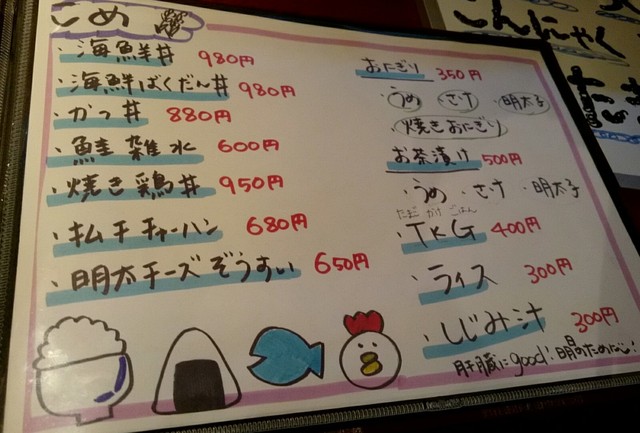 こめ
・海鮮丼 980円
・海鮮ばくだん丼 980円
・かつ丼 880円
・鮭雑炊 600円
・焼き鶏丼 950円
・キムチチャーハン 680円
・明太チーズぞうすい 650円
おにぎり 350円
・うめ ・さけ ・明太子
・焼きおにぎり
お茶漬け 500円
・うめ ・さけ ・明太子
たまご かけ ごはん
・TKG 400円
・ライス 300円
・しじみ汁 300円
肝臓にgood!明日のために!
こんにゃく